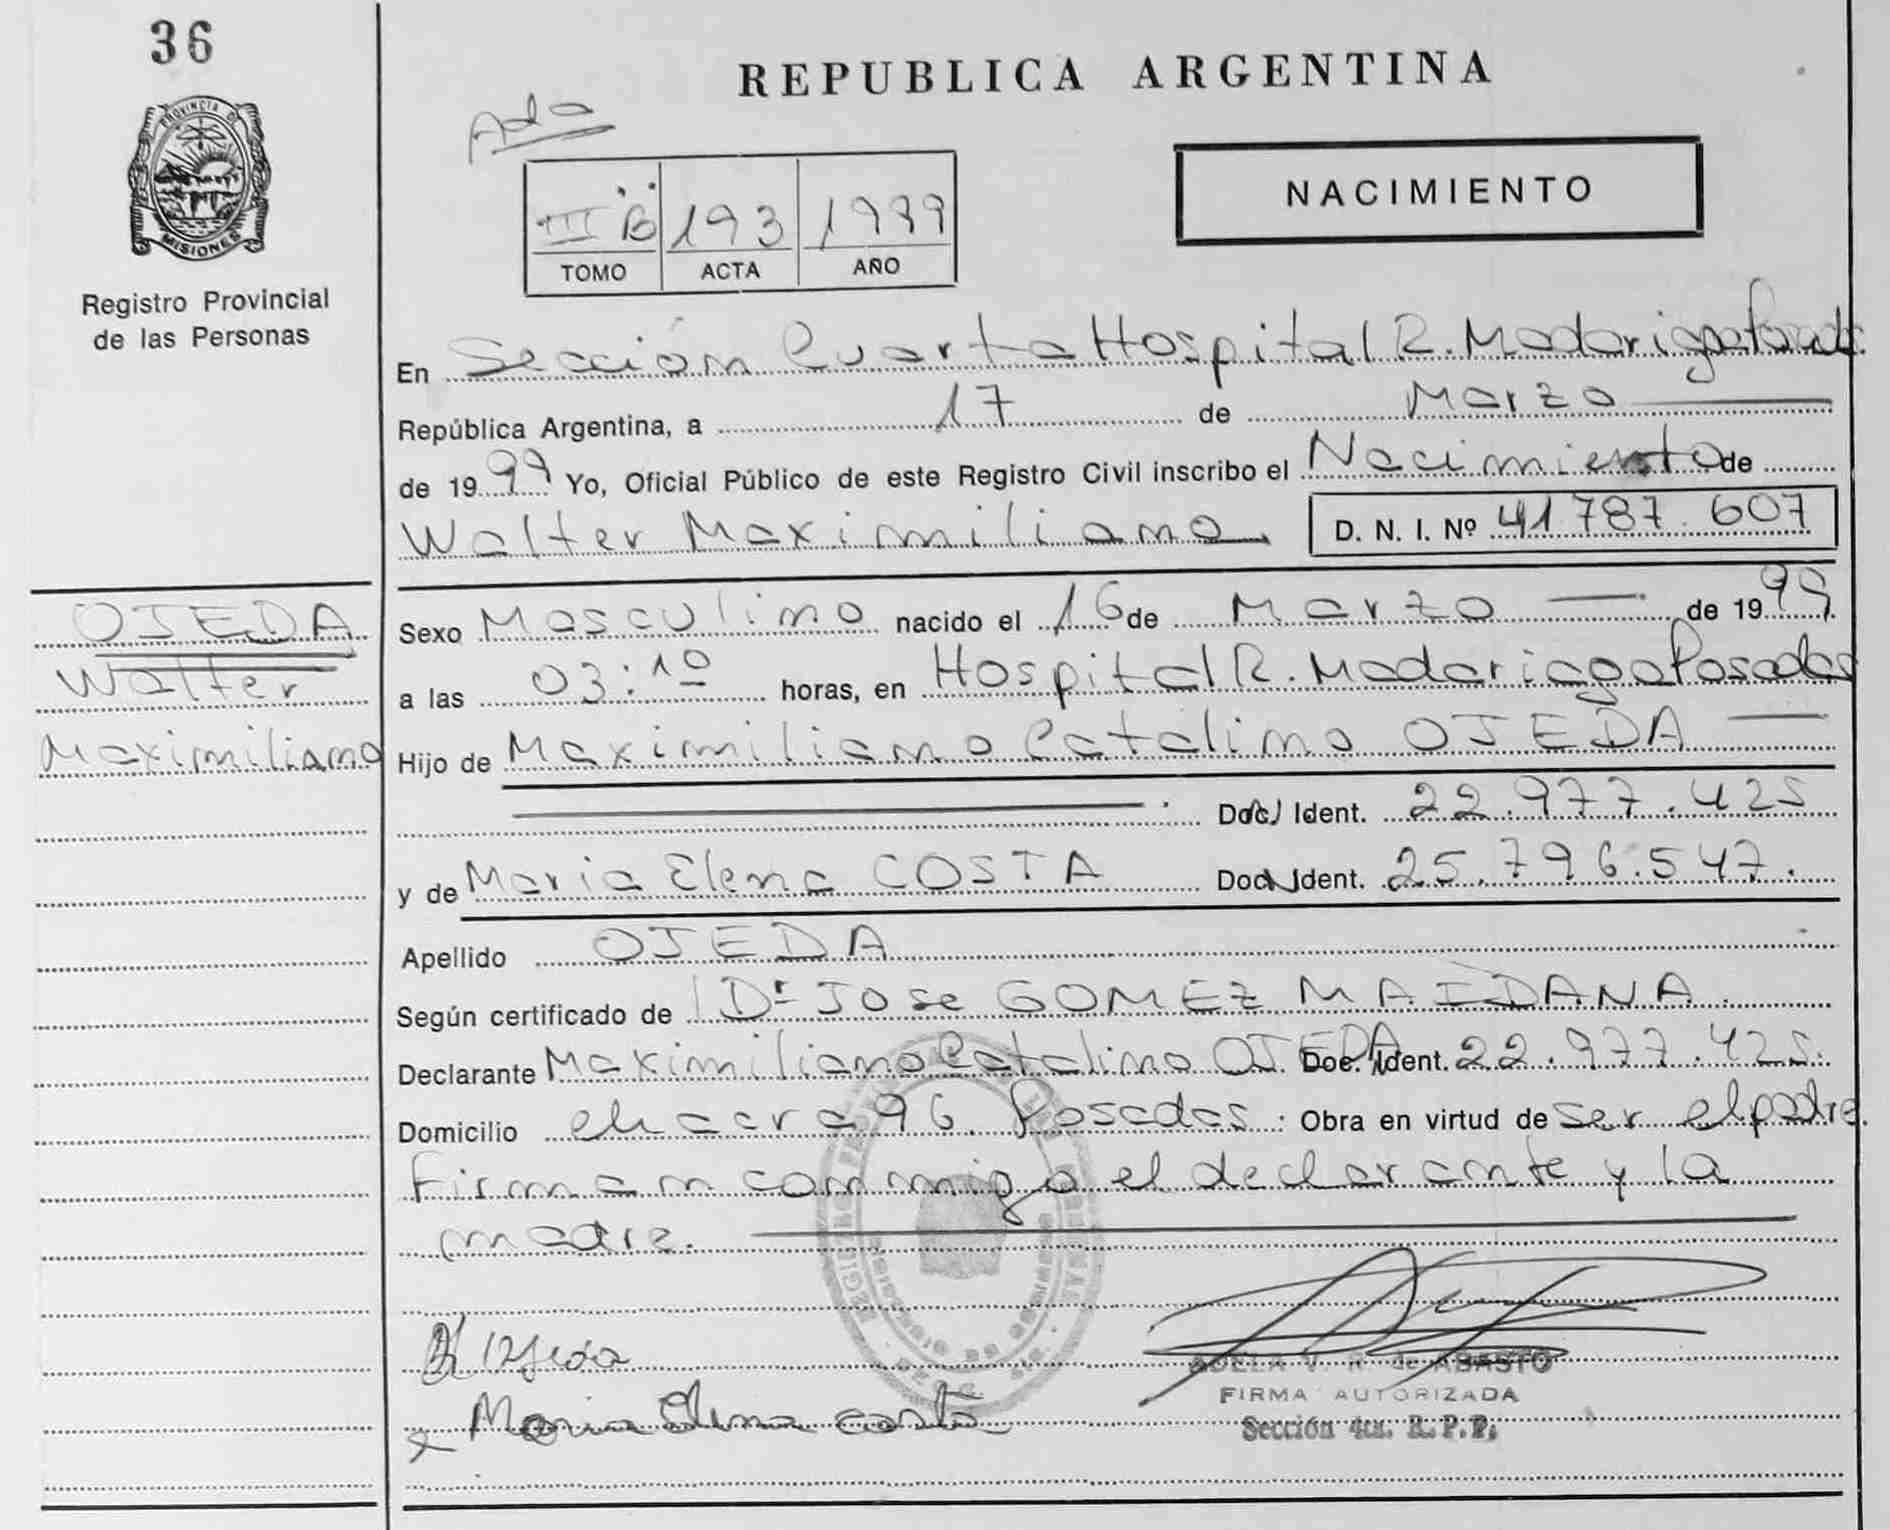 36
PROVINCIA DE
MISIONES
Registro Provincial
de las Personas
REPUBLICA ARGENTINA
Ado
NACIMIENTO
III B 193 1999
TOMO ACTA AÑO
En Sección Cuarta Hospital R. Madariaga Posadas.
República Argentina, a 17 de Marzo
de 1999 Yo, Oficial Público de este Registro Civil inscribo el Nacimiento de
Walter Maximiliano. D. N. I. Nº 41.787.607
OJEDA
Walter
Maximiliano
Sexo Masculino nacido el 16 de Marzo de 1999
a las 03:10 horas, en Hospital R. Madariaga Posadas
Hijo de Maximiliano Catalino OJEDA
Doc. Ident. 22.977.425
y de Maria Elena COSTA Doc. Ident. 25.796.547.
Apellido OJEDA
Según certificado de Dr JOSe GOMEZ MAIDANA.
Declarante Maximiliano Catalino OJEDA Doc. Ident. 22.977.425.
Domicilio chacara 96. Posadas. Obra en virtud de ser el padre.
Firman conmigo el declarante y la
madre.
Maria Elena costa
ADELA V. R. de ABASTO
FIRMA AUTORIZADA
Sección 4ta. R.P.P.